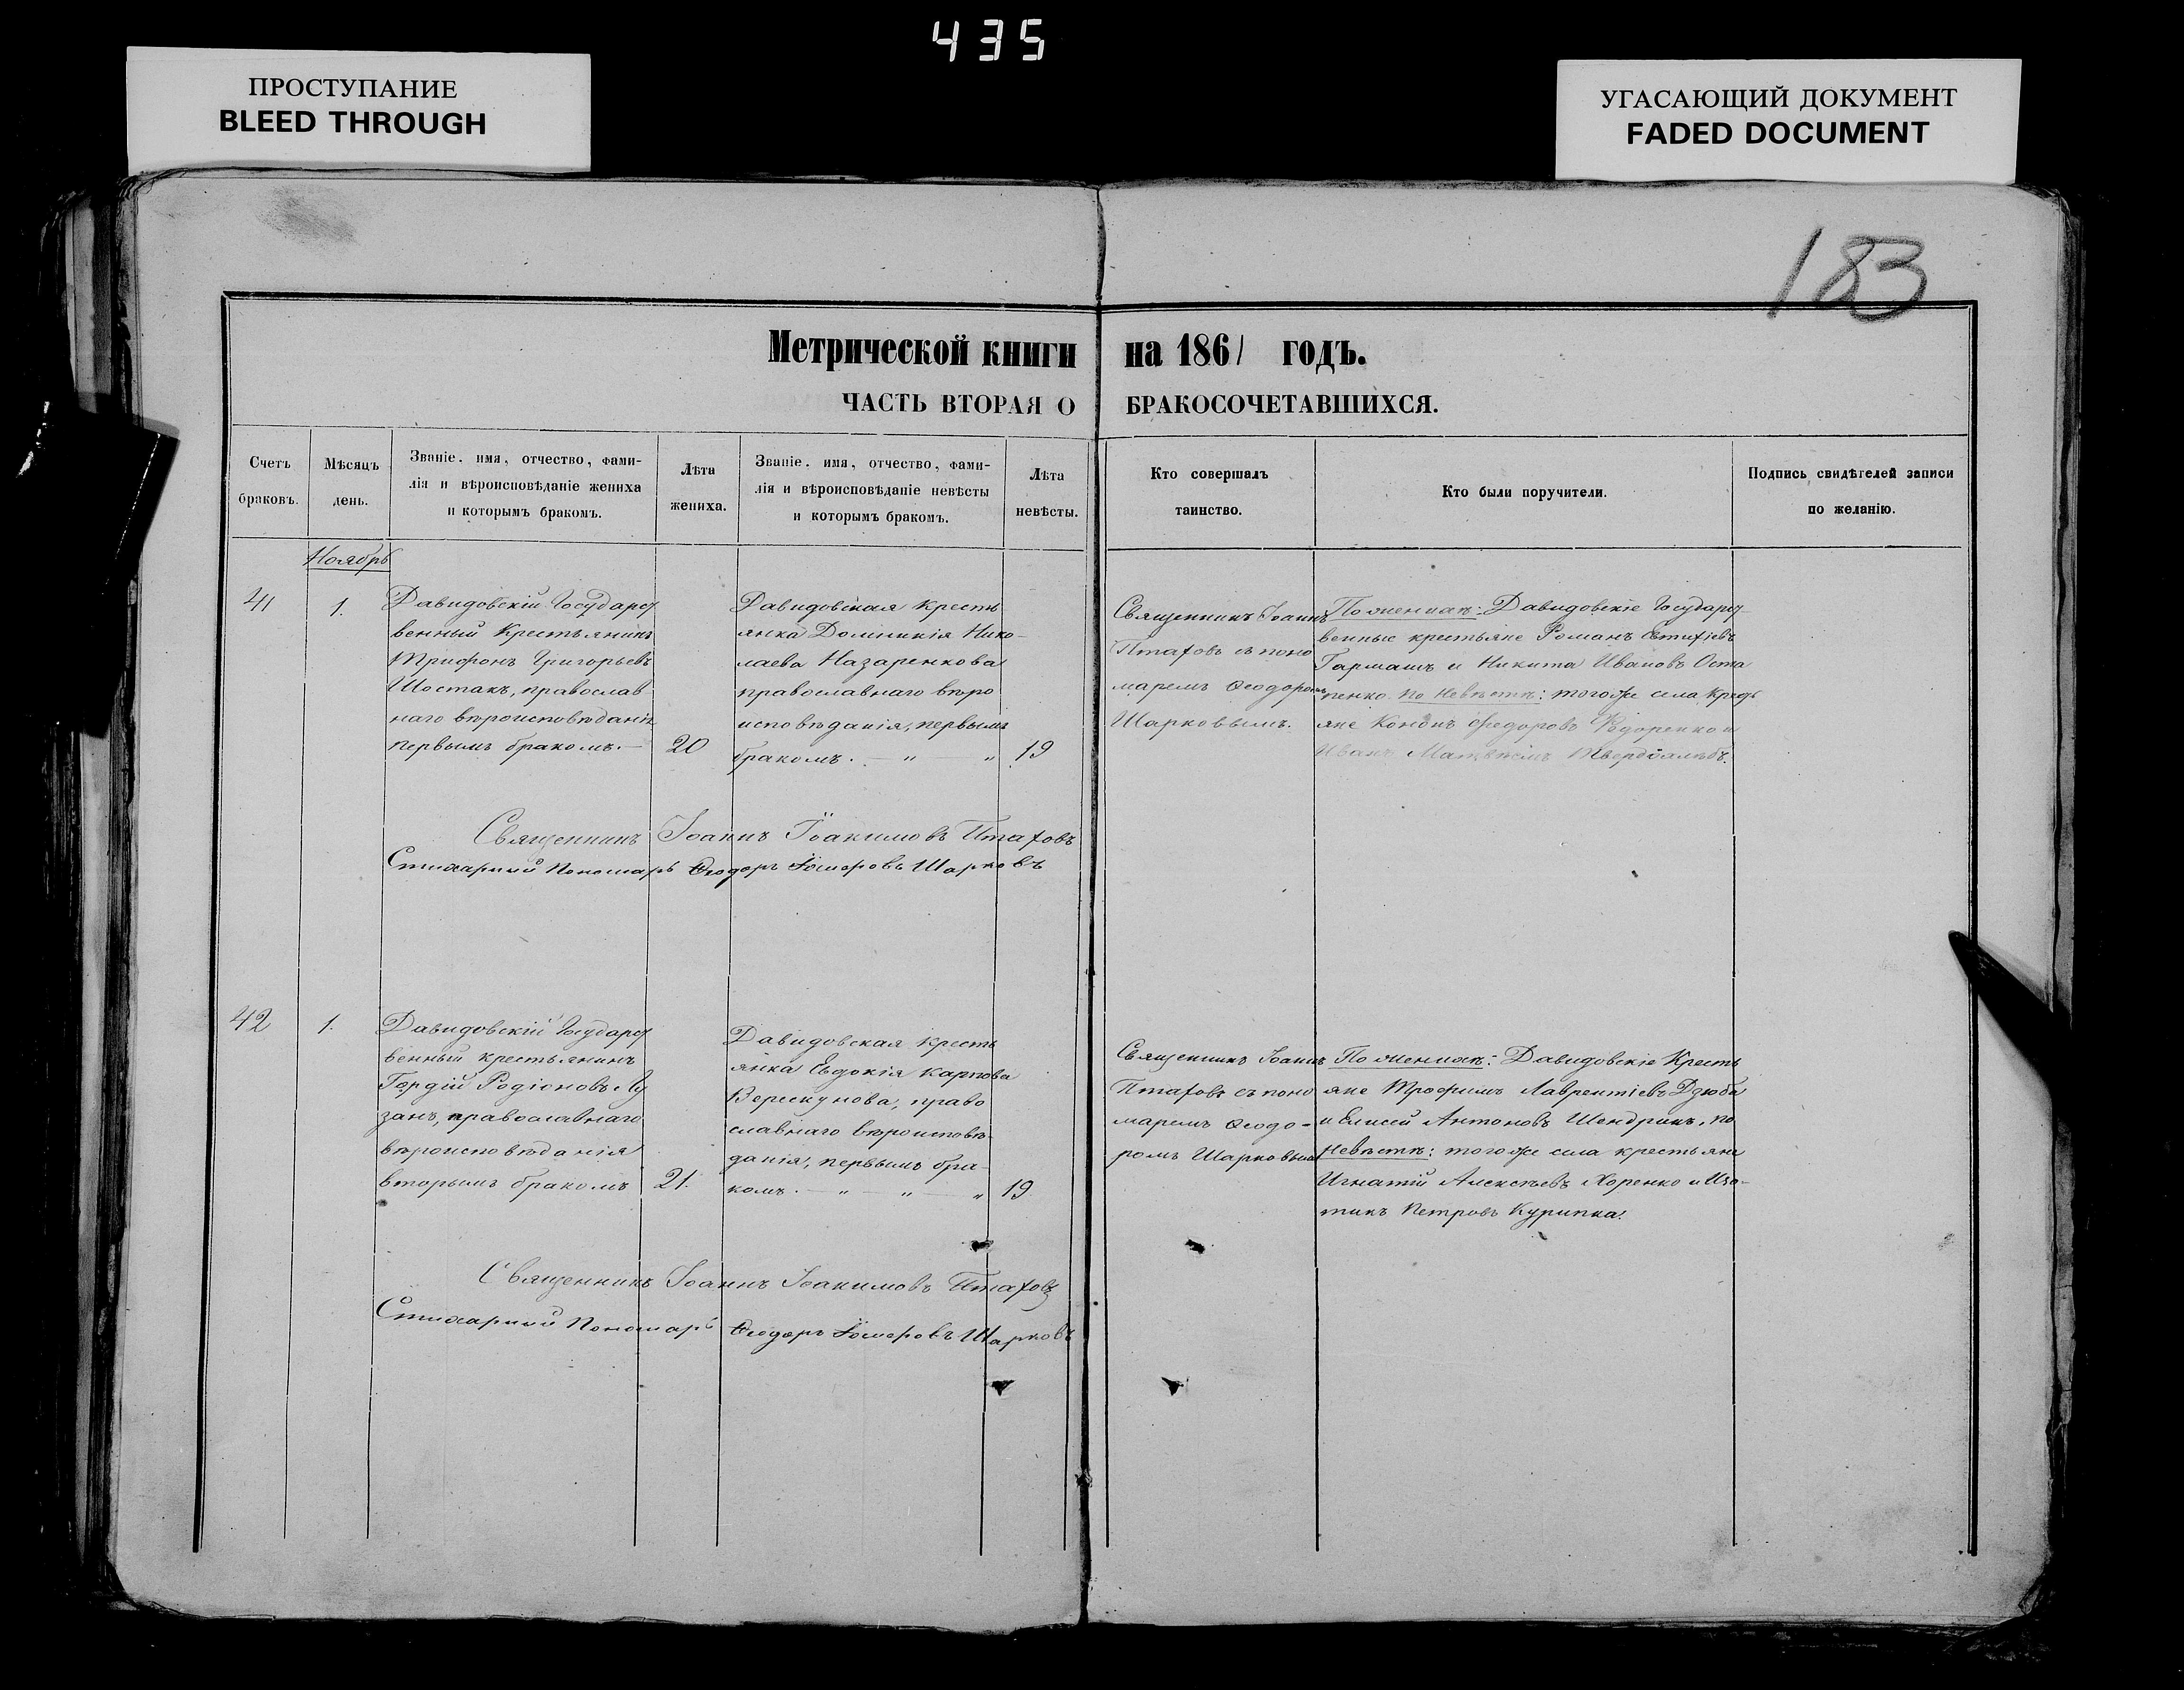 435
ПРОСТУПАНИЕ
BLEED THROUGH
УГАСАЮЩИЙ ДОКУМЕНТ
FADED DOCUMENT
183
Метрической книги на 1861 годъ.
ЧАСТЬ ВТОРАЯ О БРАКОСОЧЕТАВШИХСЯ.
Счетъ
браковъ.
Мѣсяцъ
день.
Званіе. имя, отчество, фами-
лія и вѣроисповѣданіе жениха
и которымъ бракомъ.
Лѣта
жениха.
Званіе. имя, отчество, фами-
лія и вѣроисповѣданіе невѣсты
и которымъ бракомъ.
Лѣта
невѣсты.
Кто совершалъ
таинство.
Кто были поручители.
Подпись свидѣтелей записи
по желанію.
Ноябрь
41
1.
Давидовскій Государст
венный Крестьянинъ
Трифонъ Григорьевъ
Шостакъ, православ
наго вѣроисповѣданія
первымъ бракомъ.—
20
Давидовская кресть
янка Домникія Нико-
лаева Назаренкова
православнаго вѣро
исповѣданія, первымъ
бракомъ. — " — "
19
Священникъ Іоаннъ
Птаховъ съ поно
маремъ Ѳеодоромъ
Шарковымъ.
По женихѣ: Давидовскіе Государст
венные крестьяне Романъ Евтихіевъ
Гармашъ и Никита Ивановъ Оста
пенко по невѣстѣ: того же села Кресть
яне Федоровъ
Иванъ
Священникъ Іоаннъ Іоакимовъ Птаховъ
Стихарный Пономарь Ѳеодоръ Шарковъ
42
1.
Давидовскій Государст
венный крестьянинъ
Гордій Родіоновъ Лу
занъ, православнаго
вѣроисповѣданія
вторымъ бракомъ
21.
Давидовская кресть
янка Евдокія Карпова
Верескунова, право
славнаго вѣроисповѣ-
данія, первымъ бра-
комъ. — " — " — "
19
Священникъ Іоаннъ
Птаховъ съ поно
маремъ Ѳеодо-
ромъ Шарковымъ
По женихѣ: Давидовскіе Кресть
яне Трофимъ Лаврентіевъ Дзюба
и Елисей Антоновъ Шендрикъ, по
невѣстѣ: того же села крестьяне
Игнатій Алексѣевъ Хоренко и Изо-
тикъ Петровъ Курипка.
Священникъ Іоаннъ Іоакимовъ Птаховъ
Стихарный Пономарь Ѳеодоръ Шарковъ